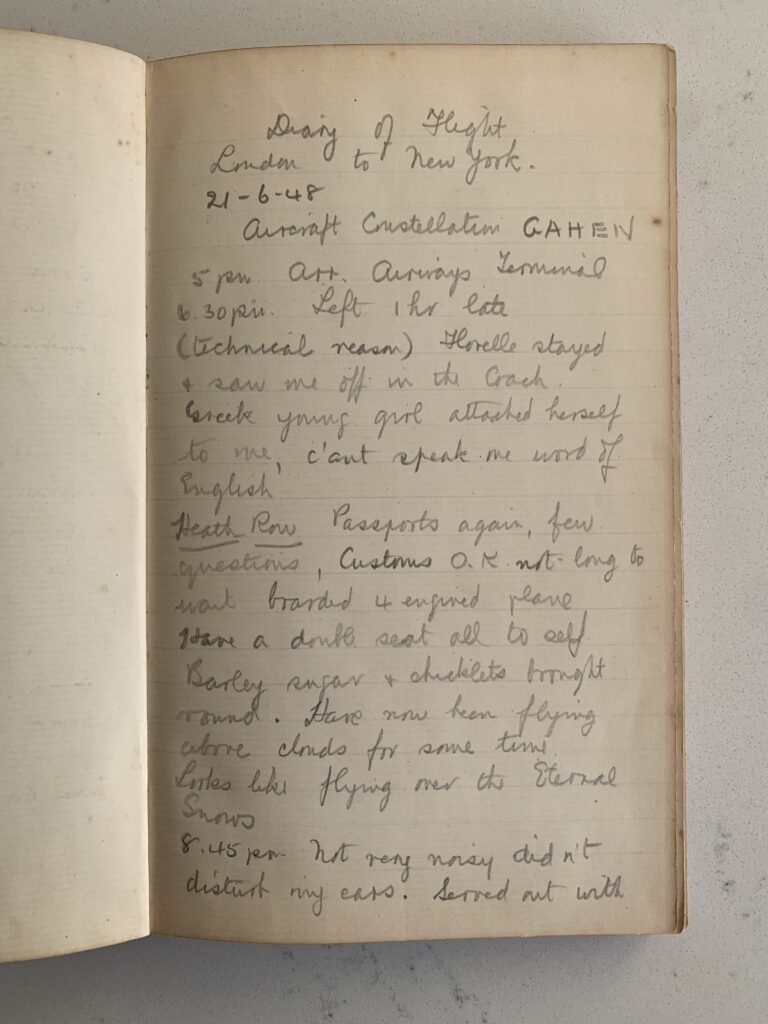 Diary of Flight
London to New York.
21-6-48
Aircraft Constellation GAHEN
5 pm Arr. Airways Terminal
6.30 pm. Left 1 hr late
(technical reason) Florelle stayed
& saw me off in the Coach.
Greek young girl attached herself
to me, c'ant speak one word of
English
Heath Row Passports again, few
questions, Customs O.K. not long to
wait boarded 4 engined plane
Have a double seat all to self
Barley sugar & chicklets brought
round. Have now been flying
above clouds for some time
Looks like flying over the Eternal
Snows
8.45 pm Not very noisy did n't
disturb my ears. Served out with